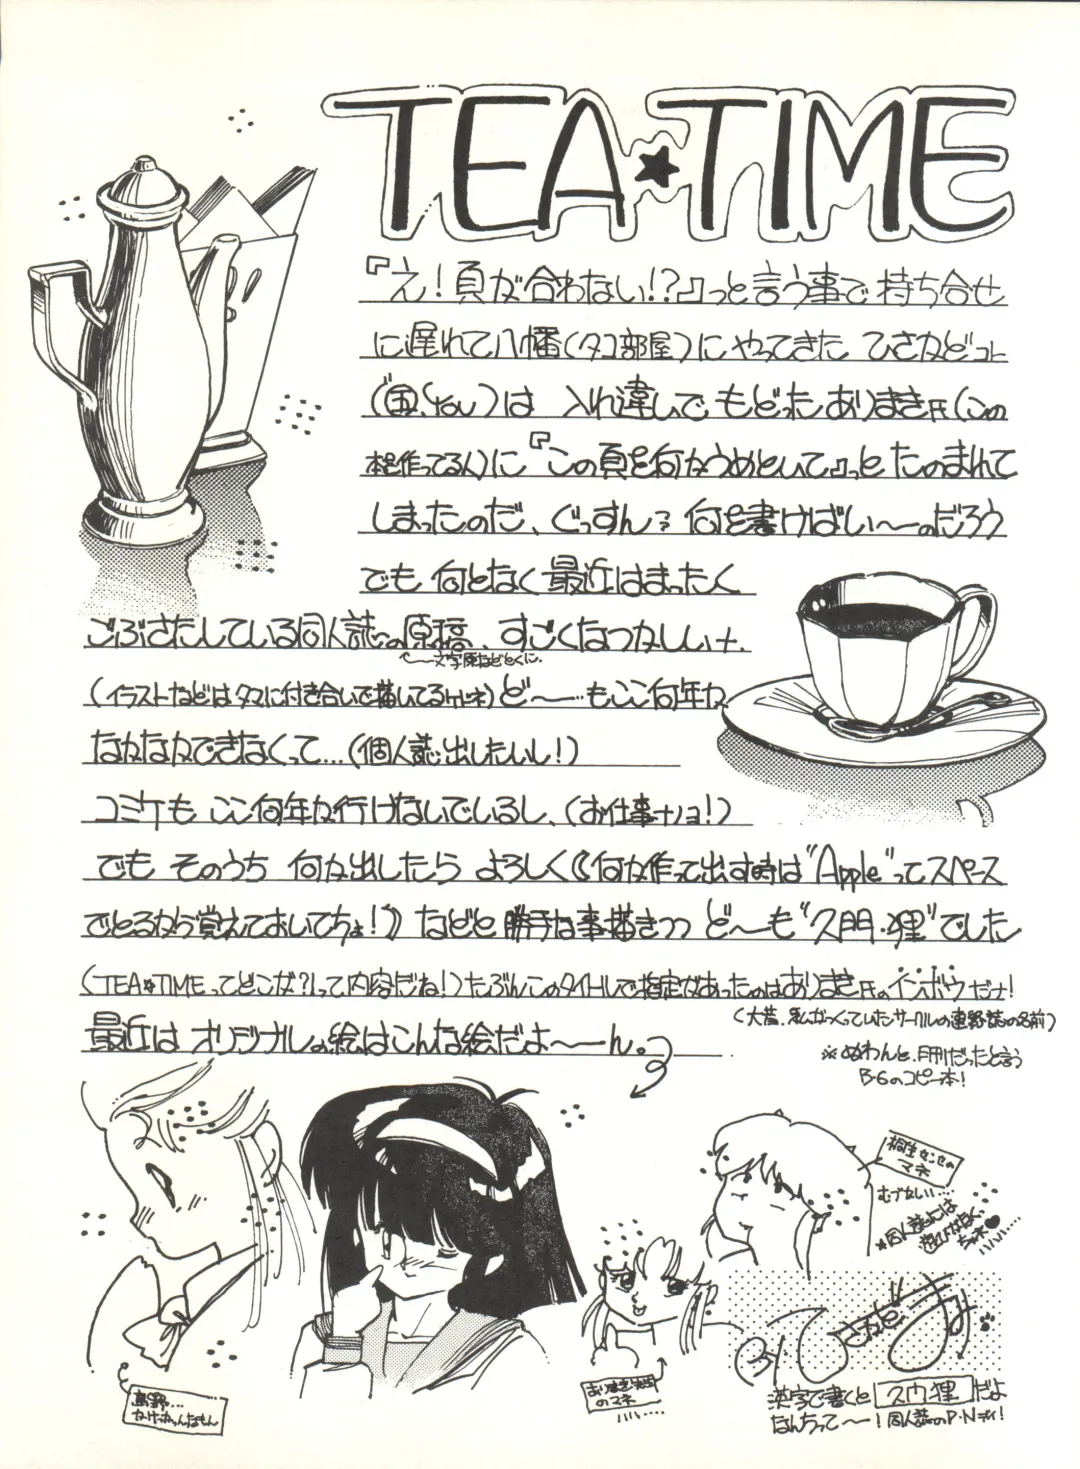 TEA★TIME
『え!頁が合わない!?』っと言う事で 持ち合せ
に遅れて八幡(タコ部屋)にやってきた ひさかど
は 入れ違いでもどった ありまき氏(この
本を作ってる人)に『この頁を何かうめといて』っと たのまれて
しまったのだ、ぐっすん? 何を書けばい〜のだろう
でも 何となく最近はまったく
ごぶさたしている同人誌の原稿、すごくなつかしいナ.
←文字原などとくに.
(イラストなどはタマに付き合いで描いてるけドネ)ど〜…もここ何年か
なかなかできなくって…(個人誌出したいし!)
コミケも ここ何年か行けないでいるし、(お仕事ナノョ!)
でも そのうち 何か出したら よろしく(何か作って出す時は"Apple"ってスペース
でとるから覚えておいてちょ!) などと 勝手な事描きつつ ど〜も"久門・狸"でした
(TEA★TIMEってどこが?って内容だね!)たぶんこのタイトルで指定があったのはありまき氏のインボウだナ!
(大昔、私がつくっていたサークルの連野誌の名前)
最近は オリジナルの絵はこんな絵だよ〜〜ん。
※ぬわんと、月刊だったと言う
B-6のコピー本!
桐生センセの
マネ
むづかしい…
※同人誌には
ありまき氏
のマネ
By
漢字で書くと 久門狸 だよ
なんちって〜! 同人誌のP・Nデイ!